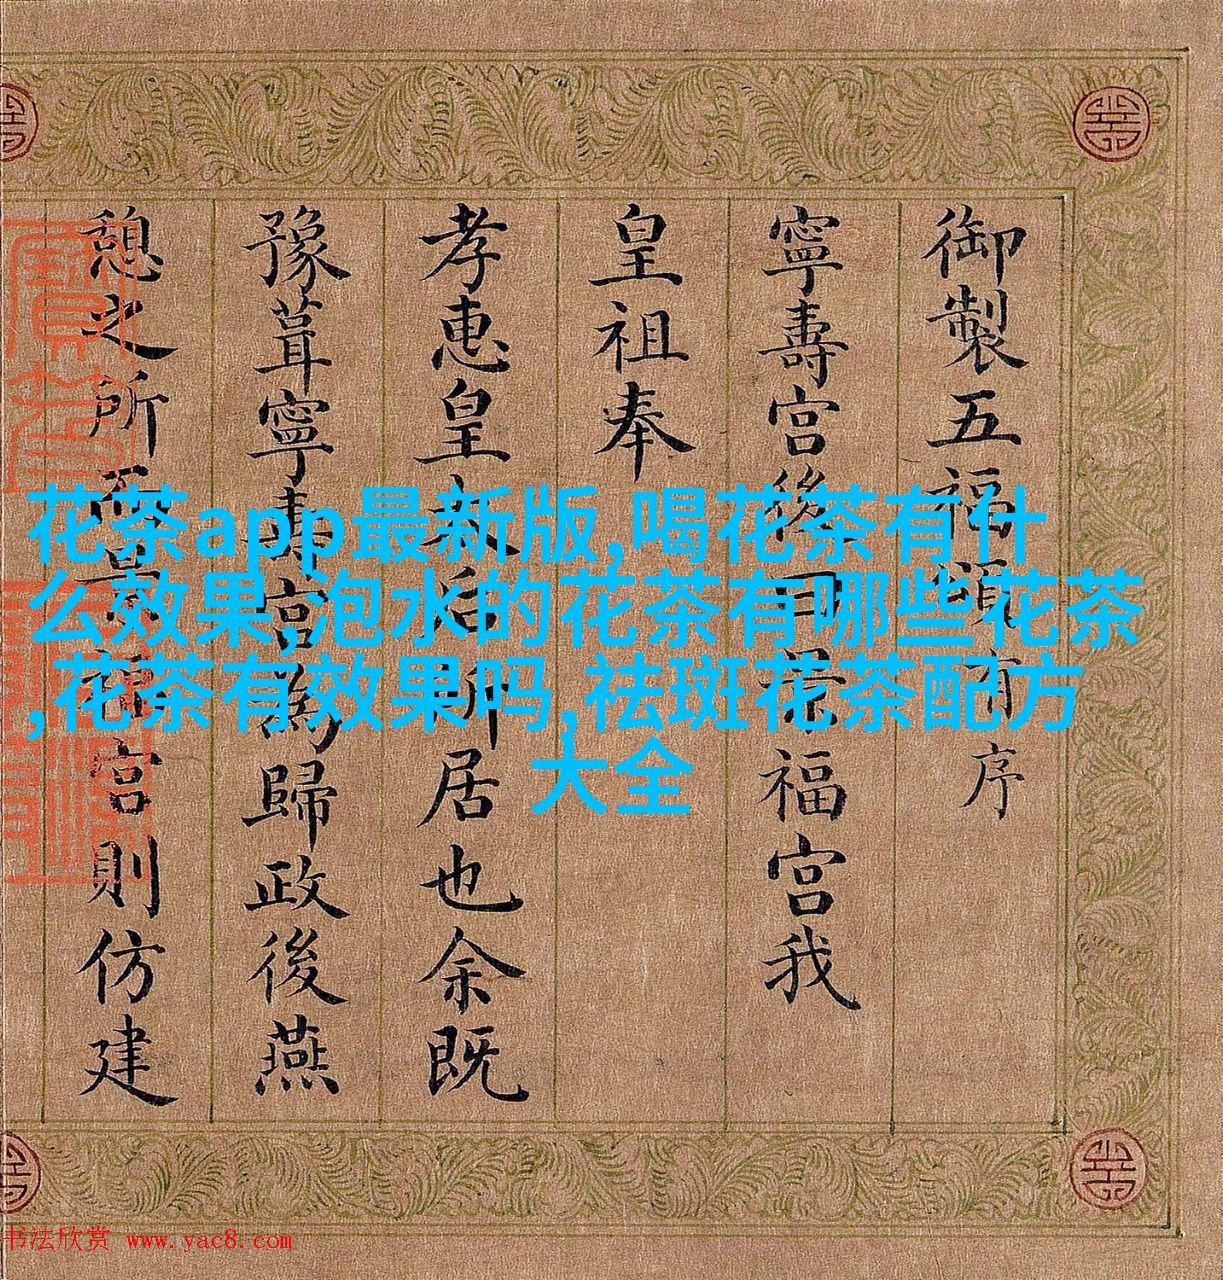 御製五福頌有序
寧壽宮後曰景福宮我
皇祖奉
孝惠皇太后所居也余既
豫葺寧壽宮為歸政後燕
憩之所而景福宮則仿建
花茶app最新版,喝花茶有什
么效果,泡水的花茶有哪些花茶
,花茶有效果吗,祛斑花茶配方
大全
书法欣赏 www.yac8.com